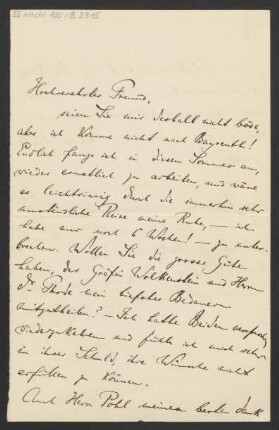 Hochverehrter Freund,
seien Sie mir deshalb nicht böse,
aber ich komme nicht nach Bayreuth!
Endlich fange ich in diesem Sommer an,
wieder ernstlich zu arbeiten, und wäre
es leichtsinnig durch die immerhin sehr
umständliche Reise meine Ruhe, – ich
habe nur noch 6 Wochen! – zu unter-
brechen. Wollen Sie die grosse Güte
haben, der Gräfin Wolkenstein und Herrn
Dr. Thode mein tiefstes Bedauern
mitzutheilen? – Ich hatte Beiden versprochen,
wiederzukommen und fühle ich mich sehr
in ihrer Schuld, ihre Wünsche nicht
erfüllen zu können.
Auch Herrn Pohl meinen besten Dank